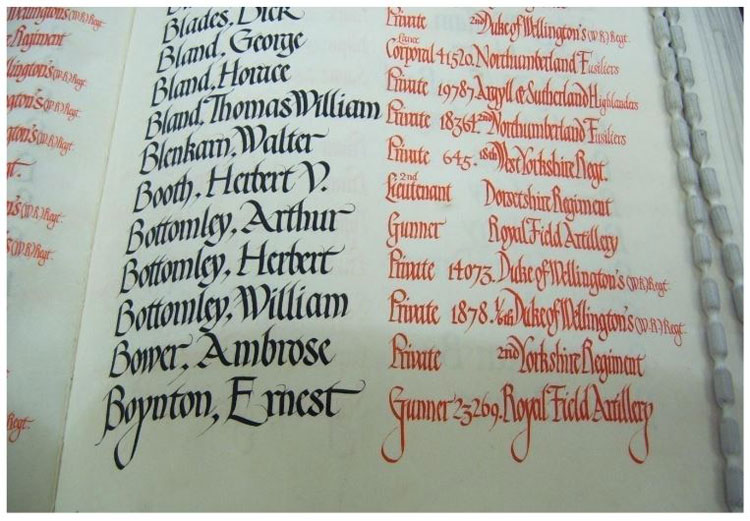 Wellington's (W.R) Regt.
Regiment
llington's (W.R) Regt.
ngton's (W.R) Regt.
ngton's (W.R) Regt.
gt.
n's (W.R) Regt.
s (W.R) Regt.
Regt.
Blades, Dick Private 2nd Duke of Wellington's (W.R) Regt.
Bland, George Lance Corporal 41520. Northumberland Fusiliers
Bland, Horace Private 19787 Argyll & Sutherland Highlanders
Bland, Thomas William Private 18364. 2nd Northumberland Fusiliers
Blenkarn, Walter Private 645. 18th West Yorkshire Regt.
Booth, Herbert V. 2nd Lieutenant Dorsetshire Regiment
Bottomley, Arthur Gunner Royal Field Artillery
Bottomley, Herbert Private 14073. Duke of Wellington's (W.R) Regt.
Bottomley, William Private 1878. 1/6th Duke of Wellington's (W.R) Regt.
Bower, Ambrose Private 2nd Yorkshire Regiment
Boynton, Ernest Gunner 23269. Royal Field Artillery